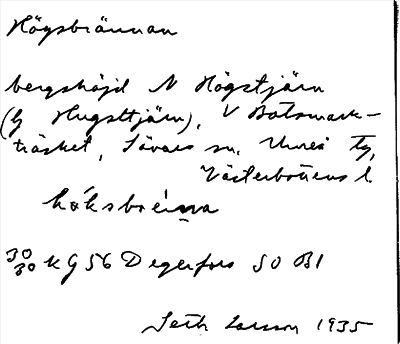 Högsbrännan
bergshöjd N Högstjärn
(ej Hugsttjärn), V Botsmark-
träsket, Sävars sn, Umeå tg,
Västerbottens l
håksbreina
30/30 kg 56 Degerfors SO B1
Seth Larsson 1935